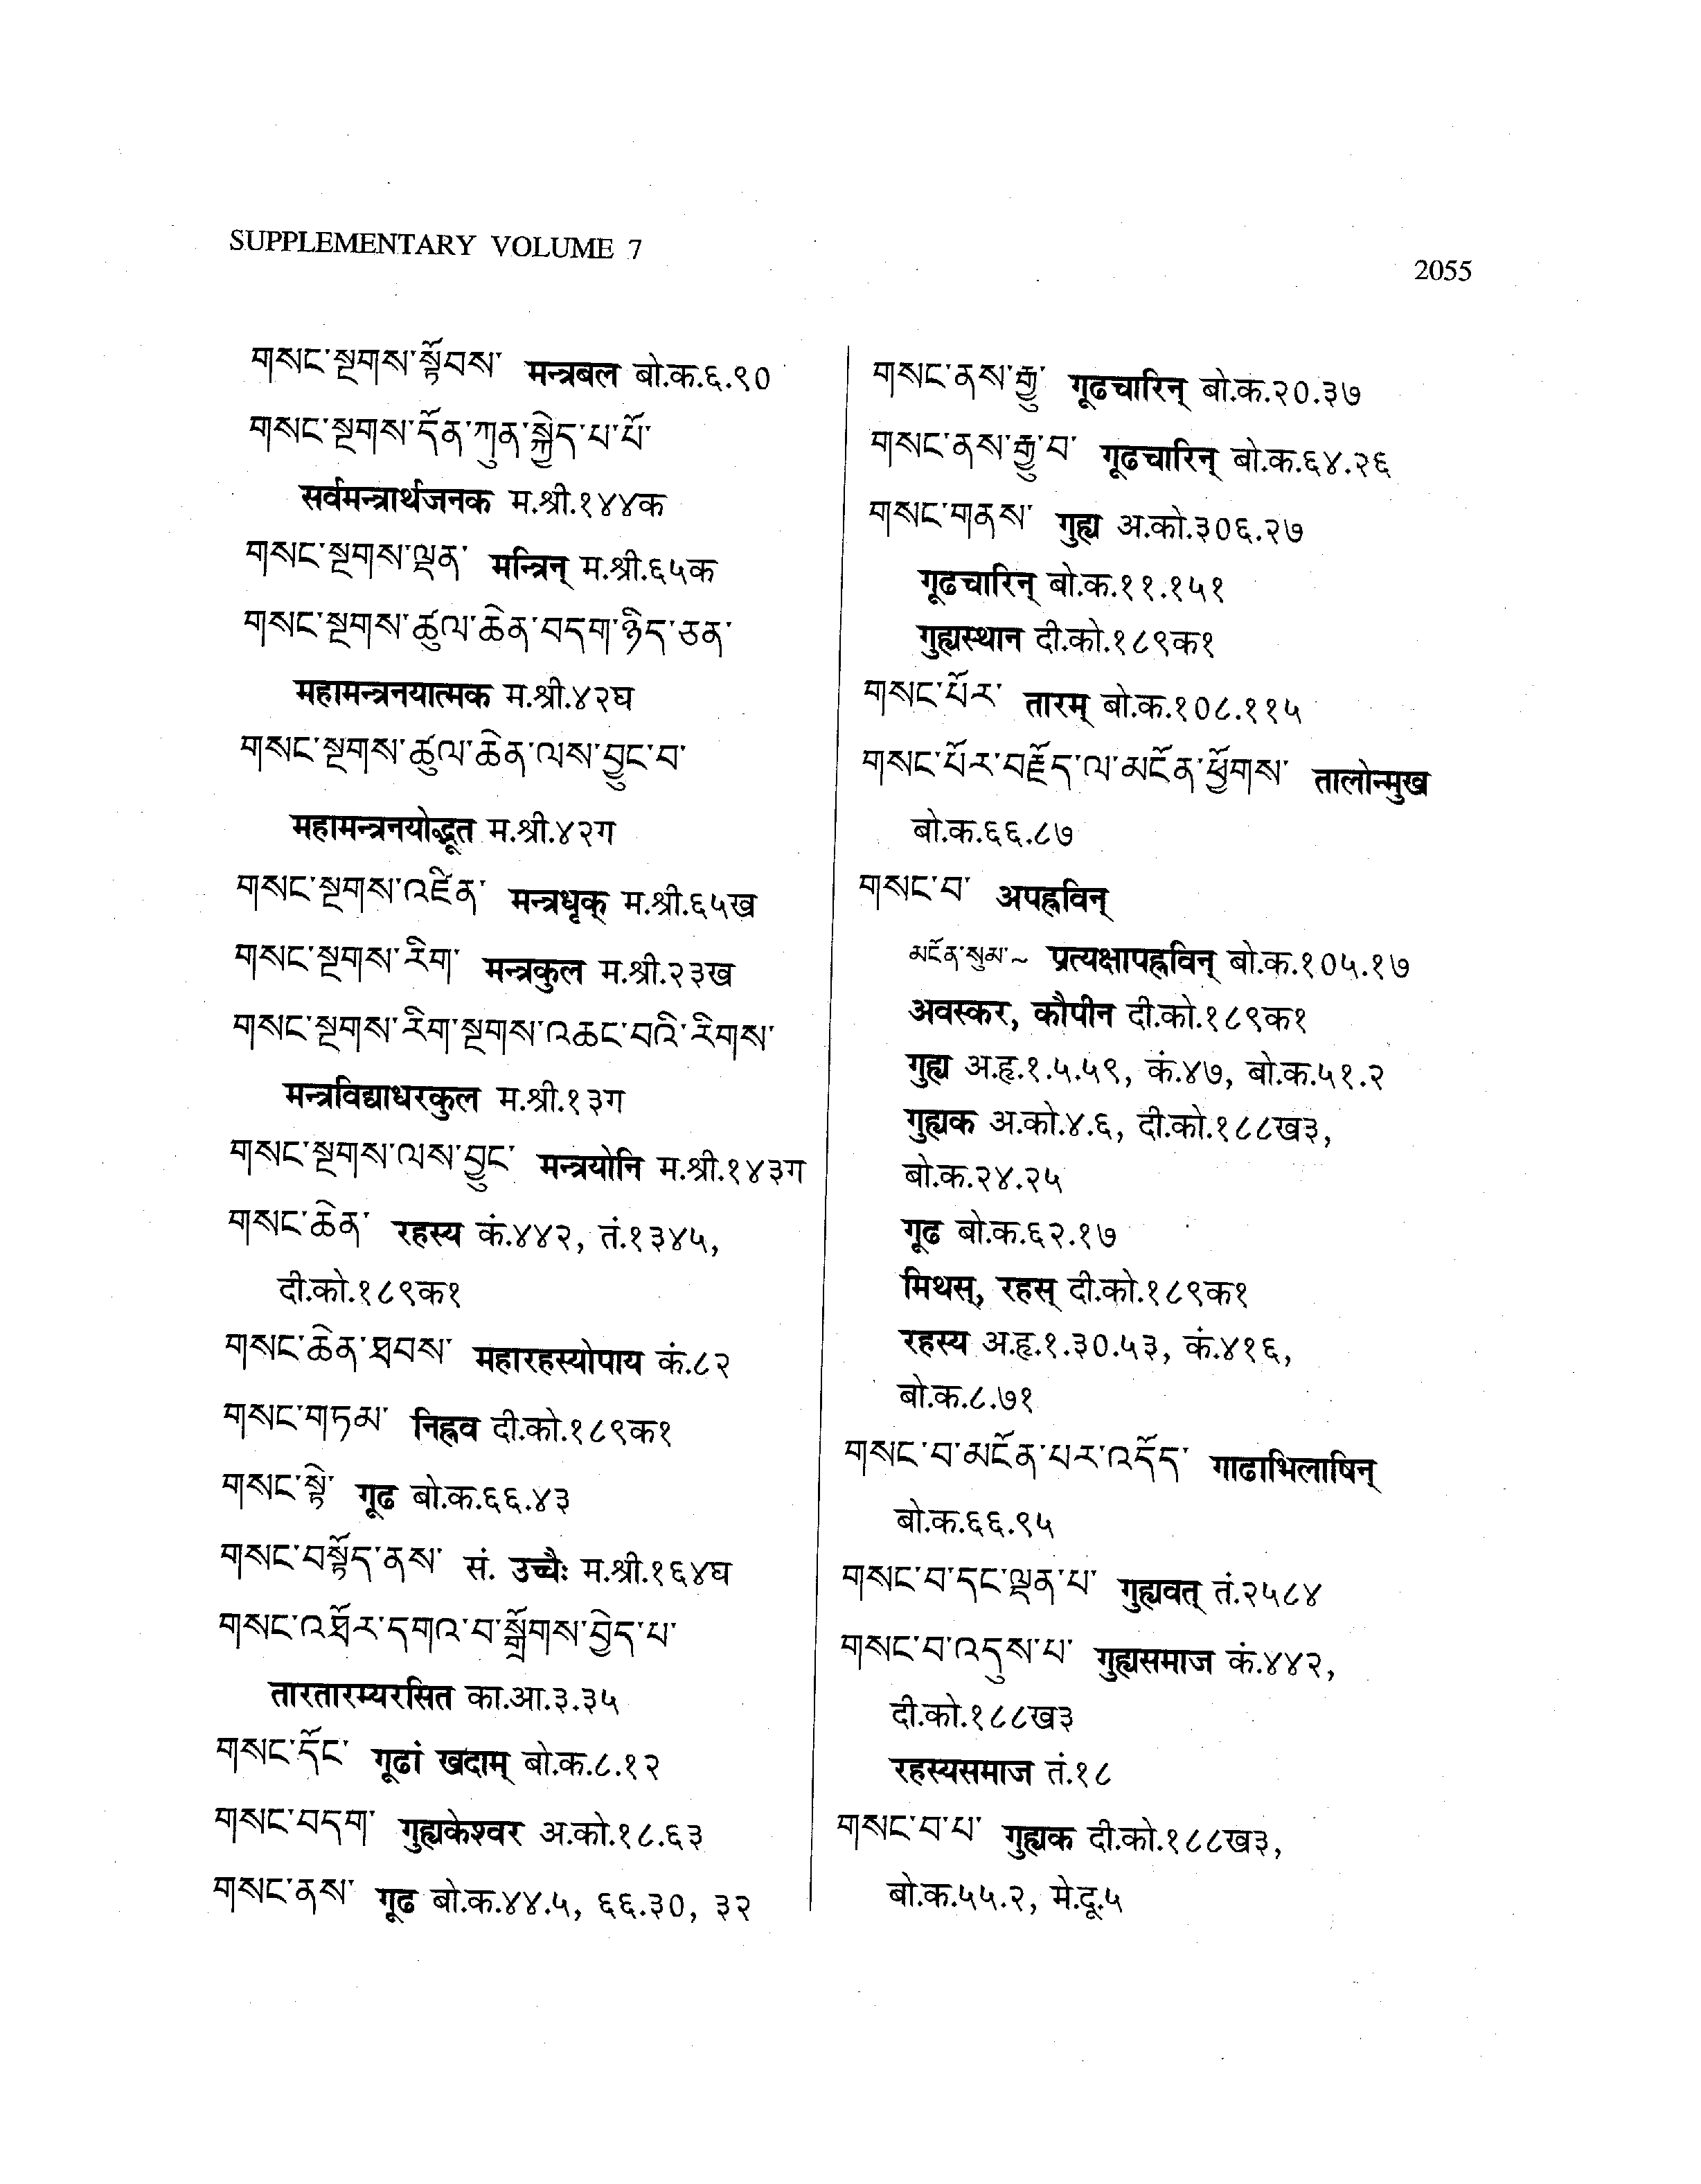 SUPPLEMENTARY VOLUME 7
2055
གསང་སྔགས་སྟོབས་ मन्त्रबल बो.क.६.९०
གསང་སྔགས་དོན་ཀུན་སྐྱེད་པ་པོ་
सर्वमन्त्रार्थजनक म.श्री.१४४क
གསང་སྔགས་ལྡན་ मन्त्रिन् म.श्री.६५क
གསང་སྔགས་ཚུལ་ཆེན་བདག་ཉིད་ཅན་
महामन्त्रनयात्मक म.श्री.४२घ
གསང་སྔགས་ཚུལ་ཆེན་ལས་བྱུང་བ་
महामन्त्रनयोद्भूत म.श्री.४२ग
གསང་སྔགས་འཛིན་ मन्त्रधृक् म.श्री.६५ख
གསང་སྔགས་རིག་ मन्त्रकुल म.श्री.२३ख
གསང་སྔགས་རིག་སྔགས་འཆང་བའི་རིགས་
मन्त्रविद्याधरकुल म.श्री.१३ग
གསང་སྔགས་ལས་བྱུང་ मन्त्रयोनि म.श्री.१४३ग
གསང་ཆེན་ रहस्य कं.४४२, तं.१३४५,
दी.को.१८९क१
གསང་ཆེན་ཐབས་ महारहस्योपाय कं.८२
གསང་གཏམ་ निह्नव दी.को.१८९क१
གསང་སྟེ་ गूढ बो.क.६६.४३
གསང་བསྟོད་ནས་ सं. उच्चैः म.श्री.१६४घ
གསང་འཐོར་དགའ་བ་སྒྲོགས་བྱེད་པ་
तारतारम्यरसित का.आ.३.३५
གསང་དོང་ गूढां खदाम् बो.क.८.१२
གསང་བདག་ गुह्यकेश्वर अ.को.१८.६३
གསང་ནས་ गूढ बो.क.४४.५, ६६.३०, ३२
གསང་ནས་རྒྱུ་ गूढचारिन् बो.क.२०.३७
གསང་ནས་རྒྱུ་བ་ गूढचारिन् बो.क.६४.२६
གསང་གནས་ गुह्य अ.को.३०६.२७
गूढचारिन् बो.क.११.१५१
गुह्यस्थान दी.को.१८९क१
གསང་པོར་ तारम् बो.क.१०८.११५
གསང་པོར་བརྗོད་ལ་མངོན་ཕྱོགས་ तालोन्मुख
बो.क.६६.८७
གསང་བ་ अपह्नविन्
མངོན་སུམ་~ प्रत्यक्षापह्नविन् बो.क.१०५.१७
अवस्कर, कौपीन दी.को.१८९क१
गुह्य अ.हृ.१.५.५९, कं.४७, बो.क.५१.२
गुह्यक अ.को.४.६, दी.को.१८८ख३,
बो.क.२४.२५
गूढ बो.क.६२.१७
मिथस्, रहस् दी.को.१८९क१
रहस्य अ.हृ.१.३०.५३, कं.४१६,
बो.क.८.७१
གསང་བ་མངོན་པར་འདོད་ गाढाभिलाषिन्
बो.क.६६.९५
གསང་བ་དང་ལྡན་པ་ गुह्यवत् तं.२५८४
གསང་བ་འདུས་པ་ गुह्यसमाज कं.४४२,
दी.को.१८८ख३
रहस्यसमाज तं.१८
གསང་བ་པ་ गुह्यक दी.को.१८८ख३,
बो.क.५५.२, मे.दू.५